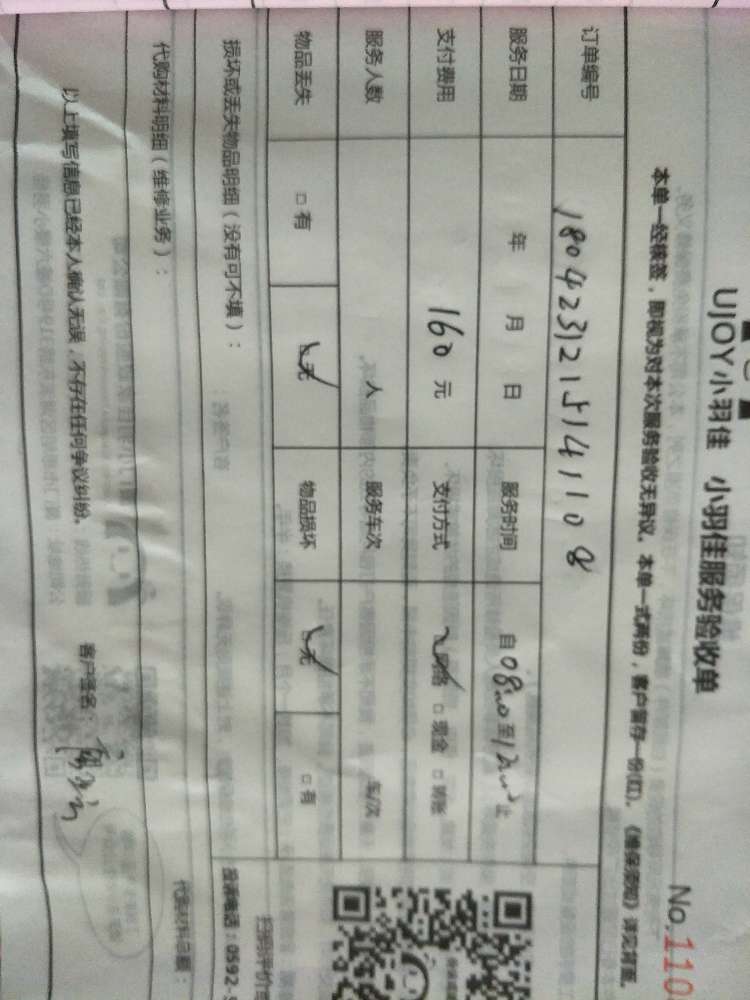 UJOY小羽佳 小羽佳服务验收单
No.110
本单一经核签，即视为对本次服务验收无异议。本单一式两份，客户留存一份(红)。《维保须知》详见背面。
订单编号 1804231215141108
服务日期 年 月 日 服务时间 自08:00至12:00止
支付费用 160元 支付方式 网络 □现金 □转账
服务人数 人 服务车次 车/次
物品丢失 □有 ☑无 物品损坏 ☑无 □有
损坏或丢失物品明细（没有可不填）：
扫码评价
投诉电话：0592-5
代购材料明细（维修业务）：
代购材料总额：
以上填写信息已经本人确认无误，不存在任何争议纠纷。 客户签名：